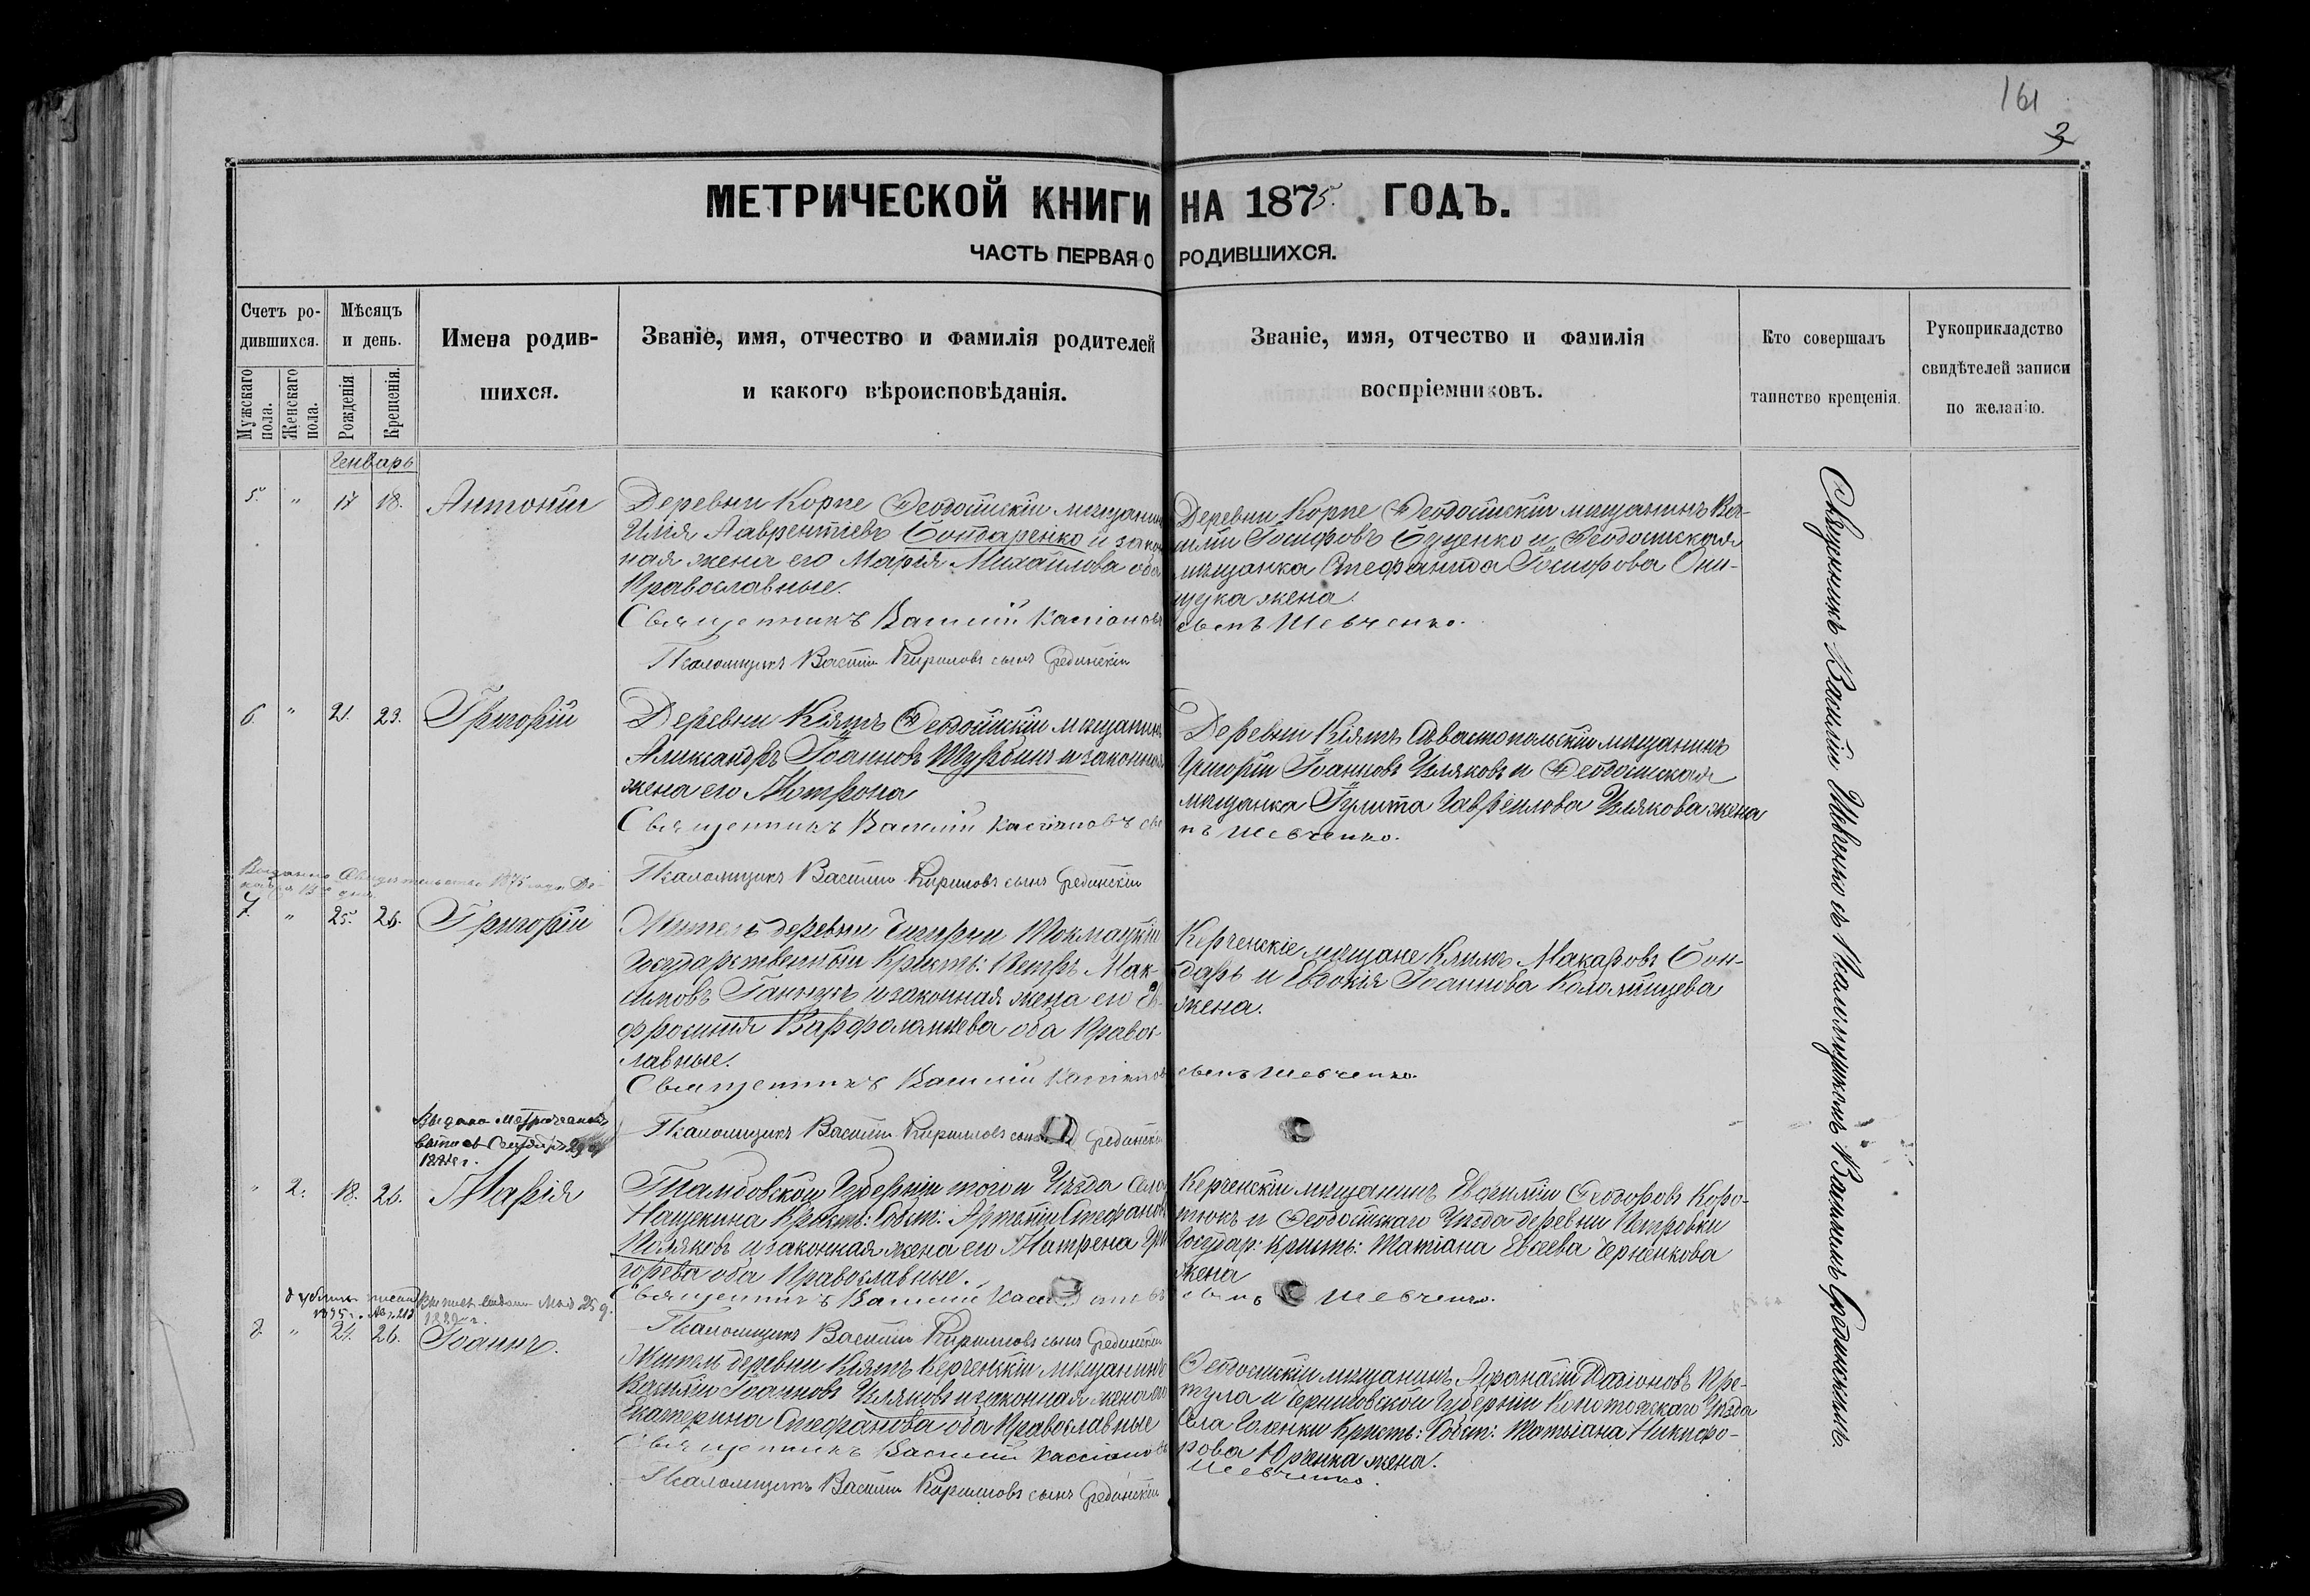 161
3
МЕТРИЧЕСКОЙ КНИГИ НА 1875. ГОДЪ.
ЧАСТЬ ПЕРВАЯ О РОДИВШИХСЯ.
Счетъ родившихся.
Мужскаго пола.
Женскаго пола.
Мѣсяцъ и день.
Рожденія
Крещенія.
Имена родившихся.
Званіе, имя, отчество и фамилія родителей
и какого вѣроисповѣданія.
Званіе, имя, отчество и фамилія
воспріемниковъ.
Кто совершалъ
таинство крещенія.
Рукоприкладство
свидѣтелей записи
по желанію.
Генварь
5. " 17 18. Антоній
Деревни Корпе Ѳеодосійскій мѣщанинъ
Илія Лаврентіевъ Бондаренко и закон
ная жена его Марія Михайлова оба
Православные.
Священникъ Василій Кассіановъ
Псаломщикъ Василій Кириловъ сынъ Срединскій
Деревни Корпе Ѳеодосійскій мѣщанинъ Ва-
силій Іосифовъ Буценко и Ѳеодосійская
мѣщанка Стефанида Іосифова Они-
щука жена.
сынъ Шевченко.
6. " 21. 23. Григорій
Деревни Кіятъ Ѳеодосійскій мѣщанинъ
Александръ Іоанновъ Шурбинъ и законная
жена его Матрона
Священникъ Василій Кассіановъ сы
Псаломщикъ Василій Кириловъ сынъ Срединскій
Деревни Кіятъ Севастопольскій мѣщанинъ
Григорій Іоанновъ Изляковъ и Ѳеодосійская
мѣщанка Іулита Гавріилова Излякова жена
нъ Шевченко.
Выдано Свидѣтельство 1875 года Де-
7. " 25. 26. Григорій
Житель деревни Чигирчи Токмацкій
Государственный Крест: Петръ Мак-
симовъ Ганжукъ и законная жена его Ев-
фросинія Варфоломеева оба Правос-
лавные.
Священникъ Василій Кассіановъ
Псаломщикъ Василій Кирилловъ сынъ Срединскій
Керченскіе мѣщане Климъ Макаровъ Бон-
даръ и Евдокія Іоаннова Коломійцева
жена.
сынъ Шевченко.
" 2. 18. 26. Марія
Тамбовской Губерніи того и Уѣзда Села
Нащекина Крест: Собст: Артемій Стефановъ
Поляковъ и законная жена его Матрена Гри
горьева оба Православные.
Священникъ Василій Кассіановъ
Псаломщикъ Василій Кирилловъ сынъ Срединскій
Керченскій мѣщанинъ Евфимій Ѳеодоровъ Коро-
тюкъ и Ѳеодосійскаго Уѣзда деревни Петровки
Государ: Крест: Татіана Евсеева Черненкова
жена
сынъ Шевченко.
8. " 21. 26. Іоаннъ.
Житель деревни Кіятъ Керченскій мѣщанинъ
Василій Іоанновъ Изляковъ и законная жена его
Екатерина Стефанова оба Православные
Священникъ Василій Кассіановъ
Псаломщикъ Василій Кирилловъ сынъ Срединскій
Ѳеодосійскій мѣщанинъ Афанасій
тула и Черниговской Губерніи Конотопскаго Уѣзда
Села Голенки Крест: Собст: Татіана Никифо-
рова Юрченка жена.
Шевченко.
Священникъ Василій Шевченко съ Псаломщикомъ Василіемъ Срединскимъ.